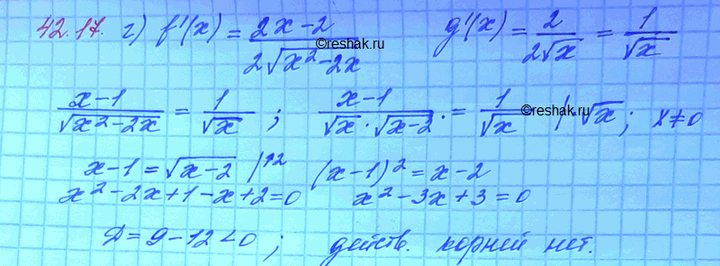 42.17. г) f'(x) = (2x-2)/(2√(x²-2x))   g'(x) = 2/(2√x) = 1/√x
©reshak.ru
(x-1)/√(x²-2x) = 1/√x ;   (x-1)/(√x·√(x-2)) · = 1/√x | ·√x ;   x≠0
©reshak.ru
x-1 = √(x-2) |↑2   (x-1)² = x-2
x²-2x+1-x+2=0   x²-3x+3=0
Д = 9-12<0 ;   действ. корней нет.